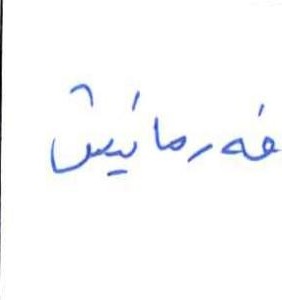 فەرمانیش